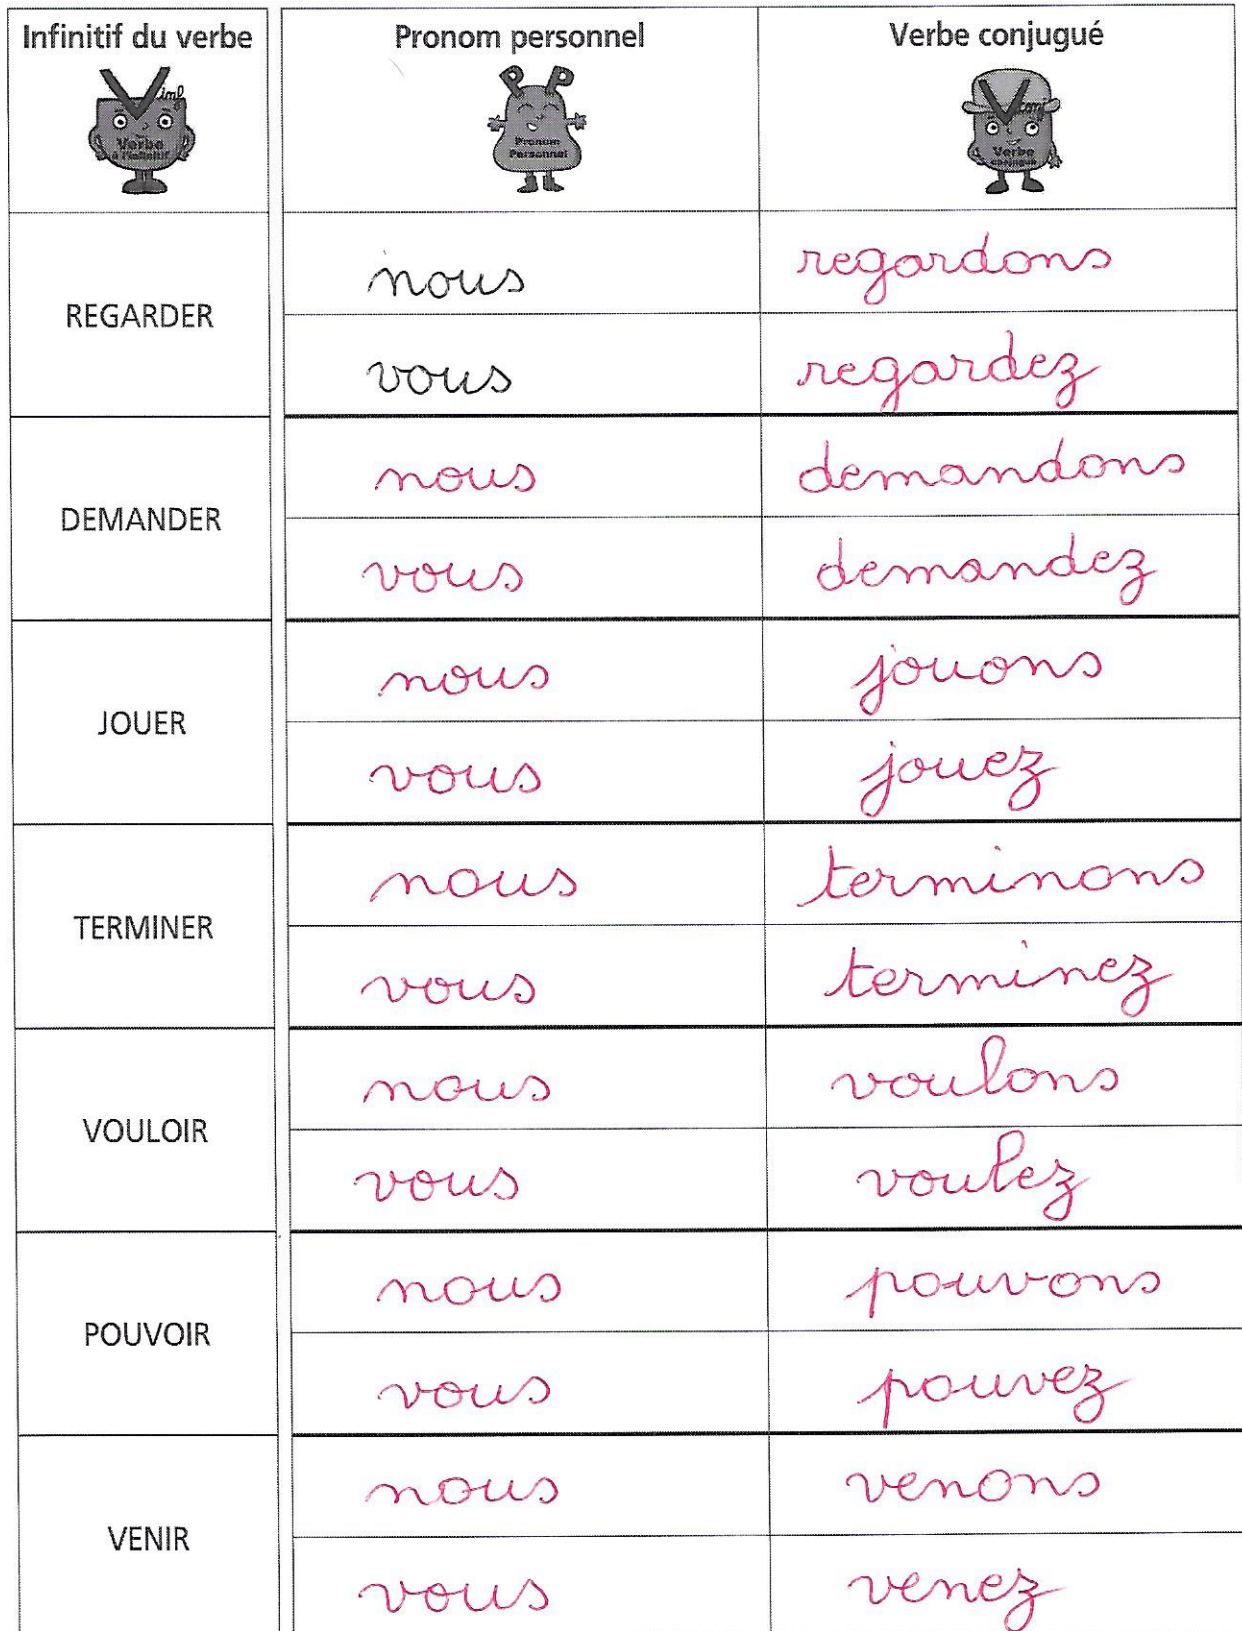 Infinitif du verbe
Pronom personnel
Verbe conjugué
inf
Verbe
à l'infinitif
P P
Pronom
Personnel
conj
Verbe
conjugué
REGARDER
nous
regardons
vous
regardez
DEMANDER
nous
demandons
vous
demandez
JOUER
nous
jouons
vous
jouez
TERMINER
nous
terminons
vous
terminez
VOULOIR
nous
voulons
vous
voulez
POUVOIR
nous
pouvons
vous
pouvez
VENIR
nous
venons
vous
venez